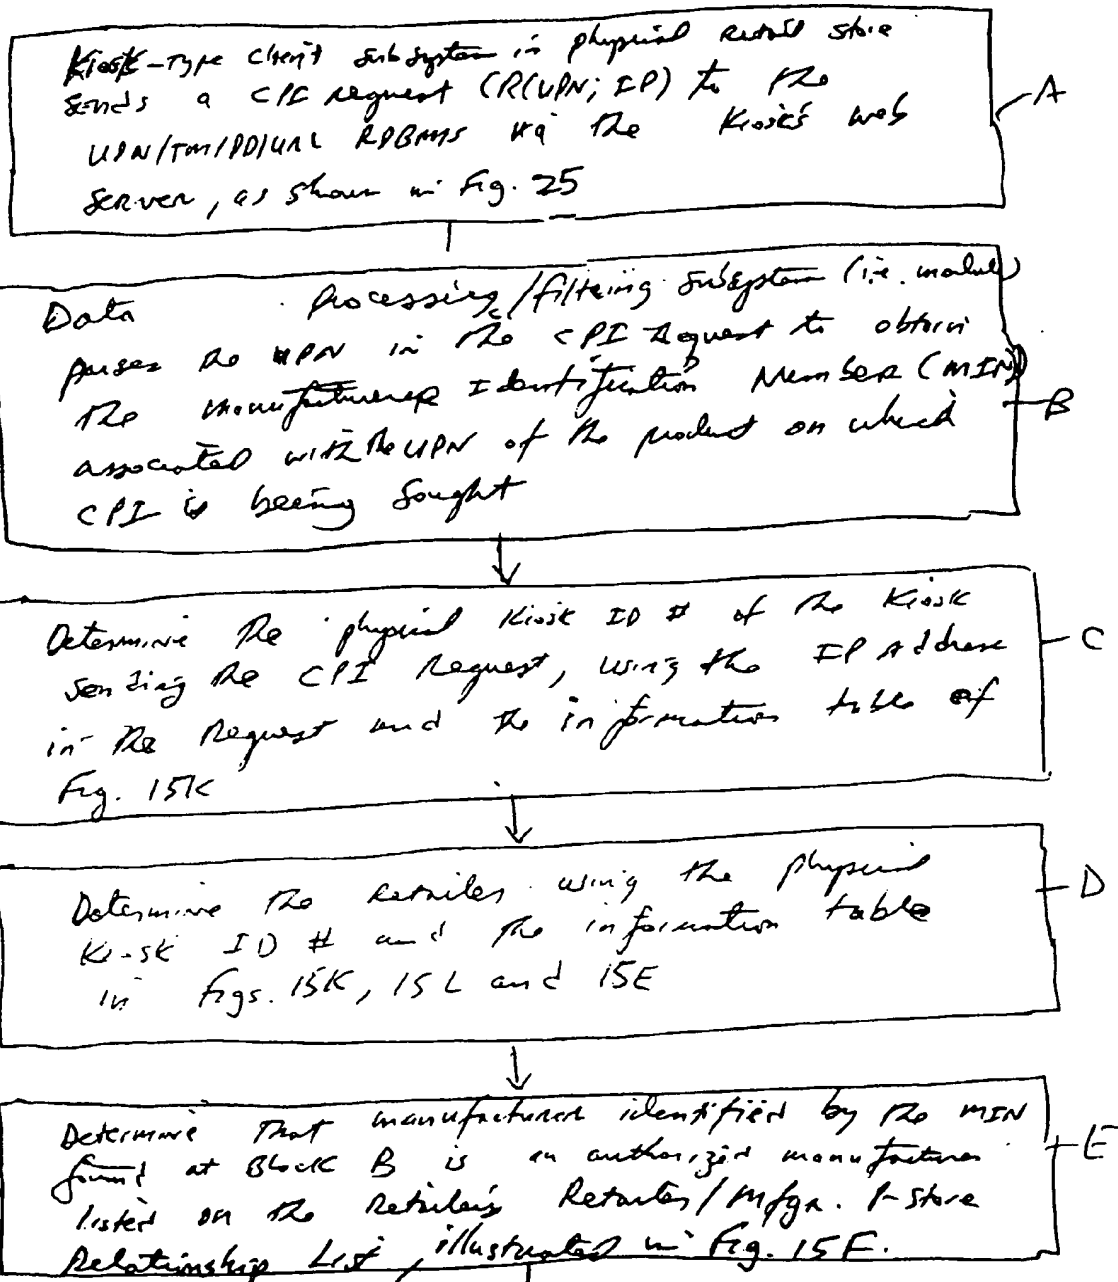 Kiosk-Type Client Subsystem in physical retail store
sends a CPI request (R(UPN; IP) to the
UPN/TM/PD/URL RDBMS via the Kiosk's web
server, as shown in Fig. 25
A
Data Processing/filtering subsystem (i.e. module)
parses the UPN in the CPI Request to obtain
the manufacturer Identification Number (MIN)
associated with the UPN of the product on which
CPI is being sought
B
Determine the physical Kiosk ID # of the Kiosk
sending the CPI Request, using the IP Address
in the Request and the information table of
Fig. 15K
C
Determine the retailer using the physical
Kiosk ID # and the information table
in Figs. 15K, 15L and 15E
D
Determine That manufacturer identified by the MIN
found at Block B is an authorized manufacturer
listed on the Retailer's Retailer/Mfgr. P-Store
Relationship List, illustrated in Fig. 15F.
E